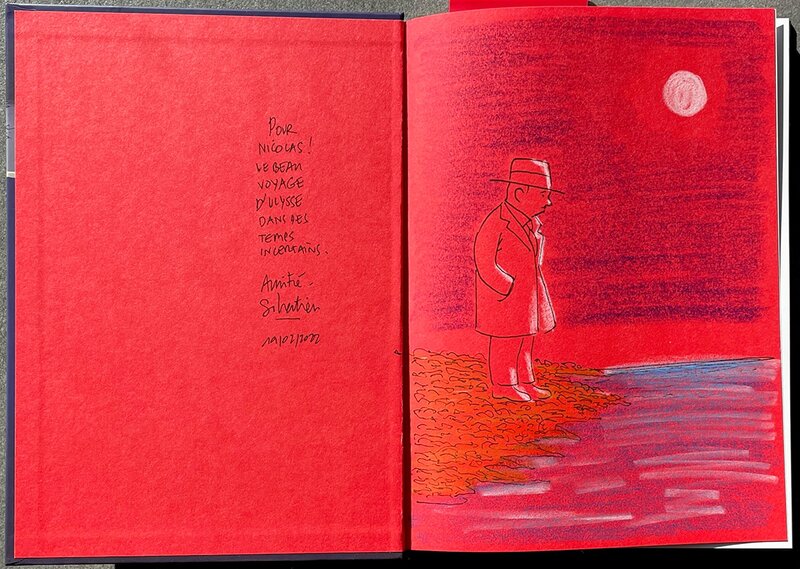 POUR
NICOLAS!
LE BEAU
VOYAGE
D'ULYSSE
DANS DES
TEMPS
INCERTAINS.
Amitié-
19/02/2022